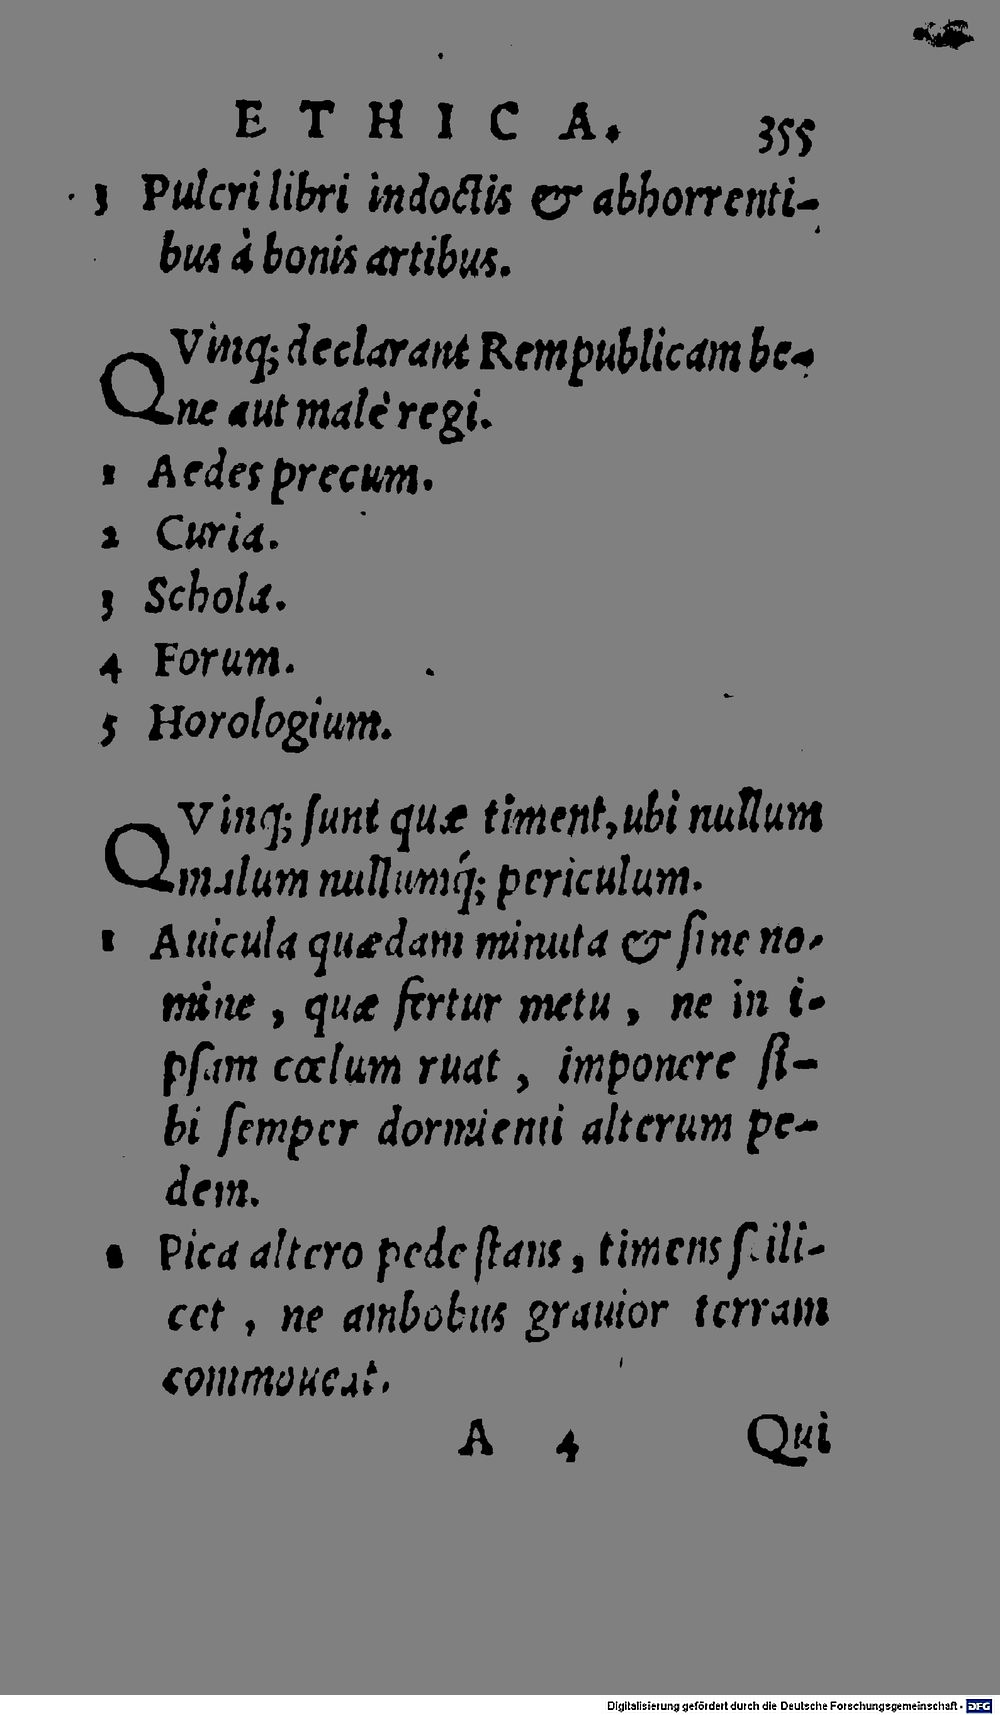 ETHICA. 355
3 Pulcri libri indoctis & abhorrenti-
bus à bonis artibus.
QVinq; declarant Rempublicam be-
ne aut malè regi.
1 Aedes precum.
2 Curia.
3 Schola.
4 Forum.
5 Horologium.
QVinq; ſunt quæ timent, ubi nullum
malum nullumq́; periculum.
1 Auicula quædam minuta & ſine no-
mine, quæ fertur metu, ne in i-
pſam cœlum ruat, imponere ſi-
bi ſemper dormienti alterum pe-
dem.
2 Pica altero pede ſtans, timens ſcili-
cet, ne ambobus grauior terram
commoueat.
A 4 Qui
Digitalisierung gefördert durch die Deutsche Forschungsgemeinschaft - DFG